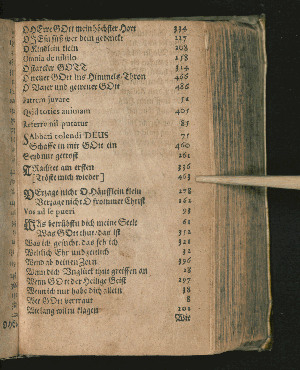 O HErre GOtt mein höchster Hort 334
O JEsu süß wer dein gedenckt 117
O Kindlein klein 208
Omnia de nihilo 158
O starcker GOTT 314
O treuer GOtt ins Himmels-Thron 466
O Vater und getreuer GOtt 486
Patrem juvare 52
Quid toties animam 405
Referre nil putatur 85
Sabbati colendi DEUS 75
Schaffe in mir GOtt ein 460
Seyd nur getrost 261
Trachtet am ersten 336
[Tröst mich wieder] 463
Verzage nicht O Häufflein klein 278
Verzage nicht O frommer Christ 162
Vos ad se pueri 93
Was betrübstu dich meine Seele 61
Was GOtt thut das ist 352
Was ich gesucht das seh ich 321
Weltlich Ehr und zeitlich 32
Wend ab deinen Zorn 396
Wenn dich Unglück thut greiffen an 18
Wenn GOtt der Heilige Geist 297
Wenn ich nur habe dich allein 38
Wer GOtt vertraut 8
Wie lang wiltu klagen 101
Wie